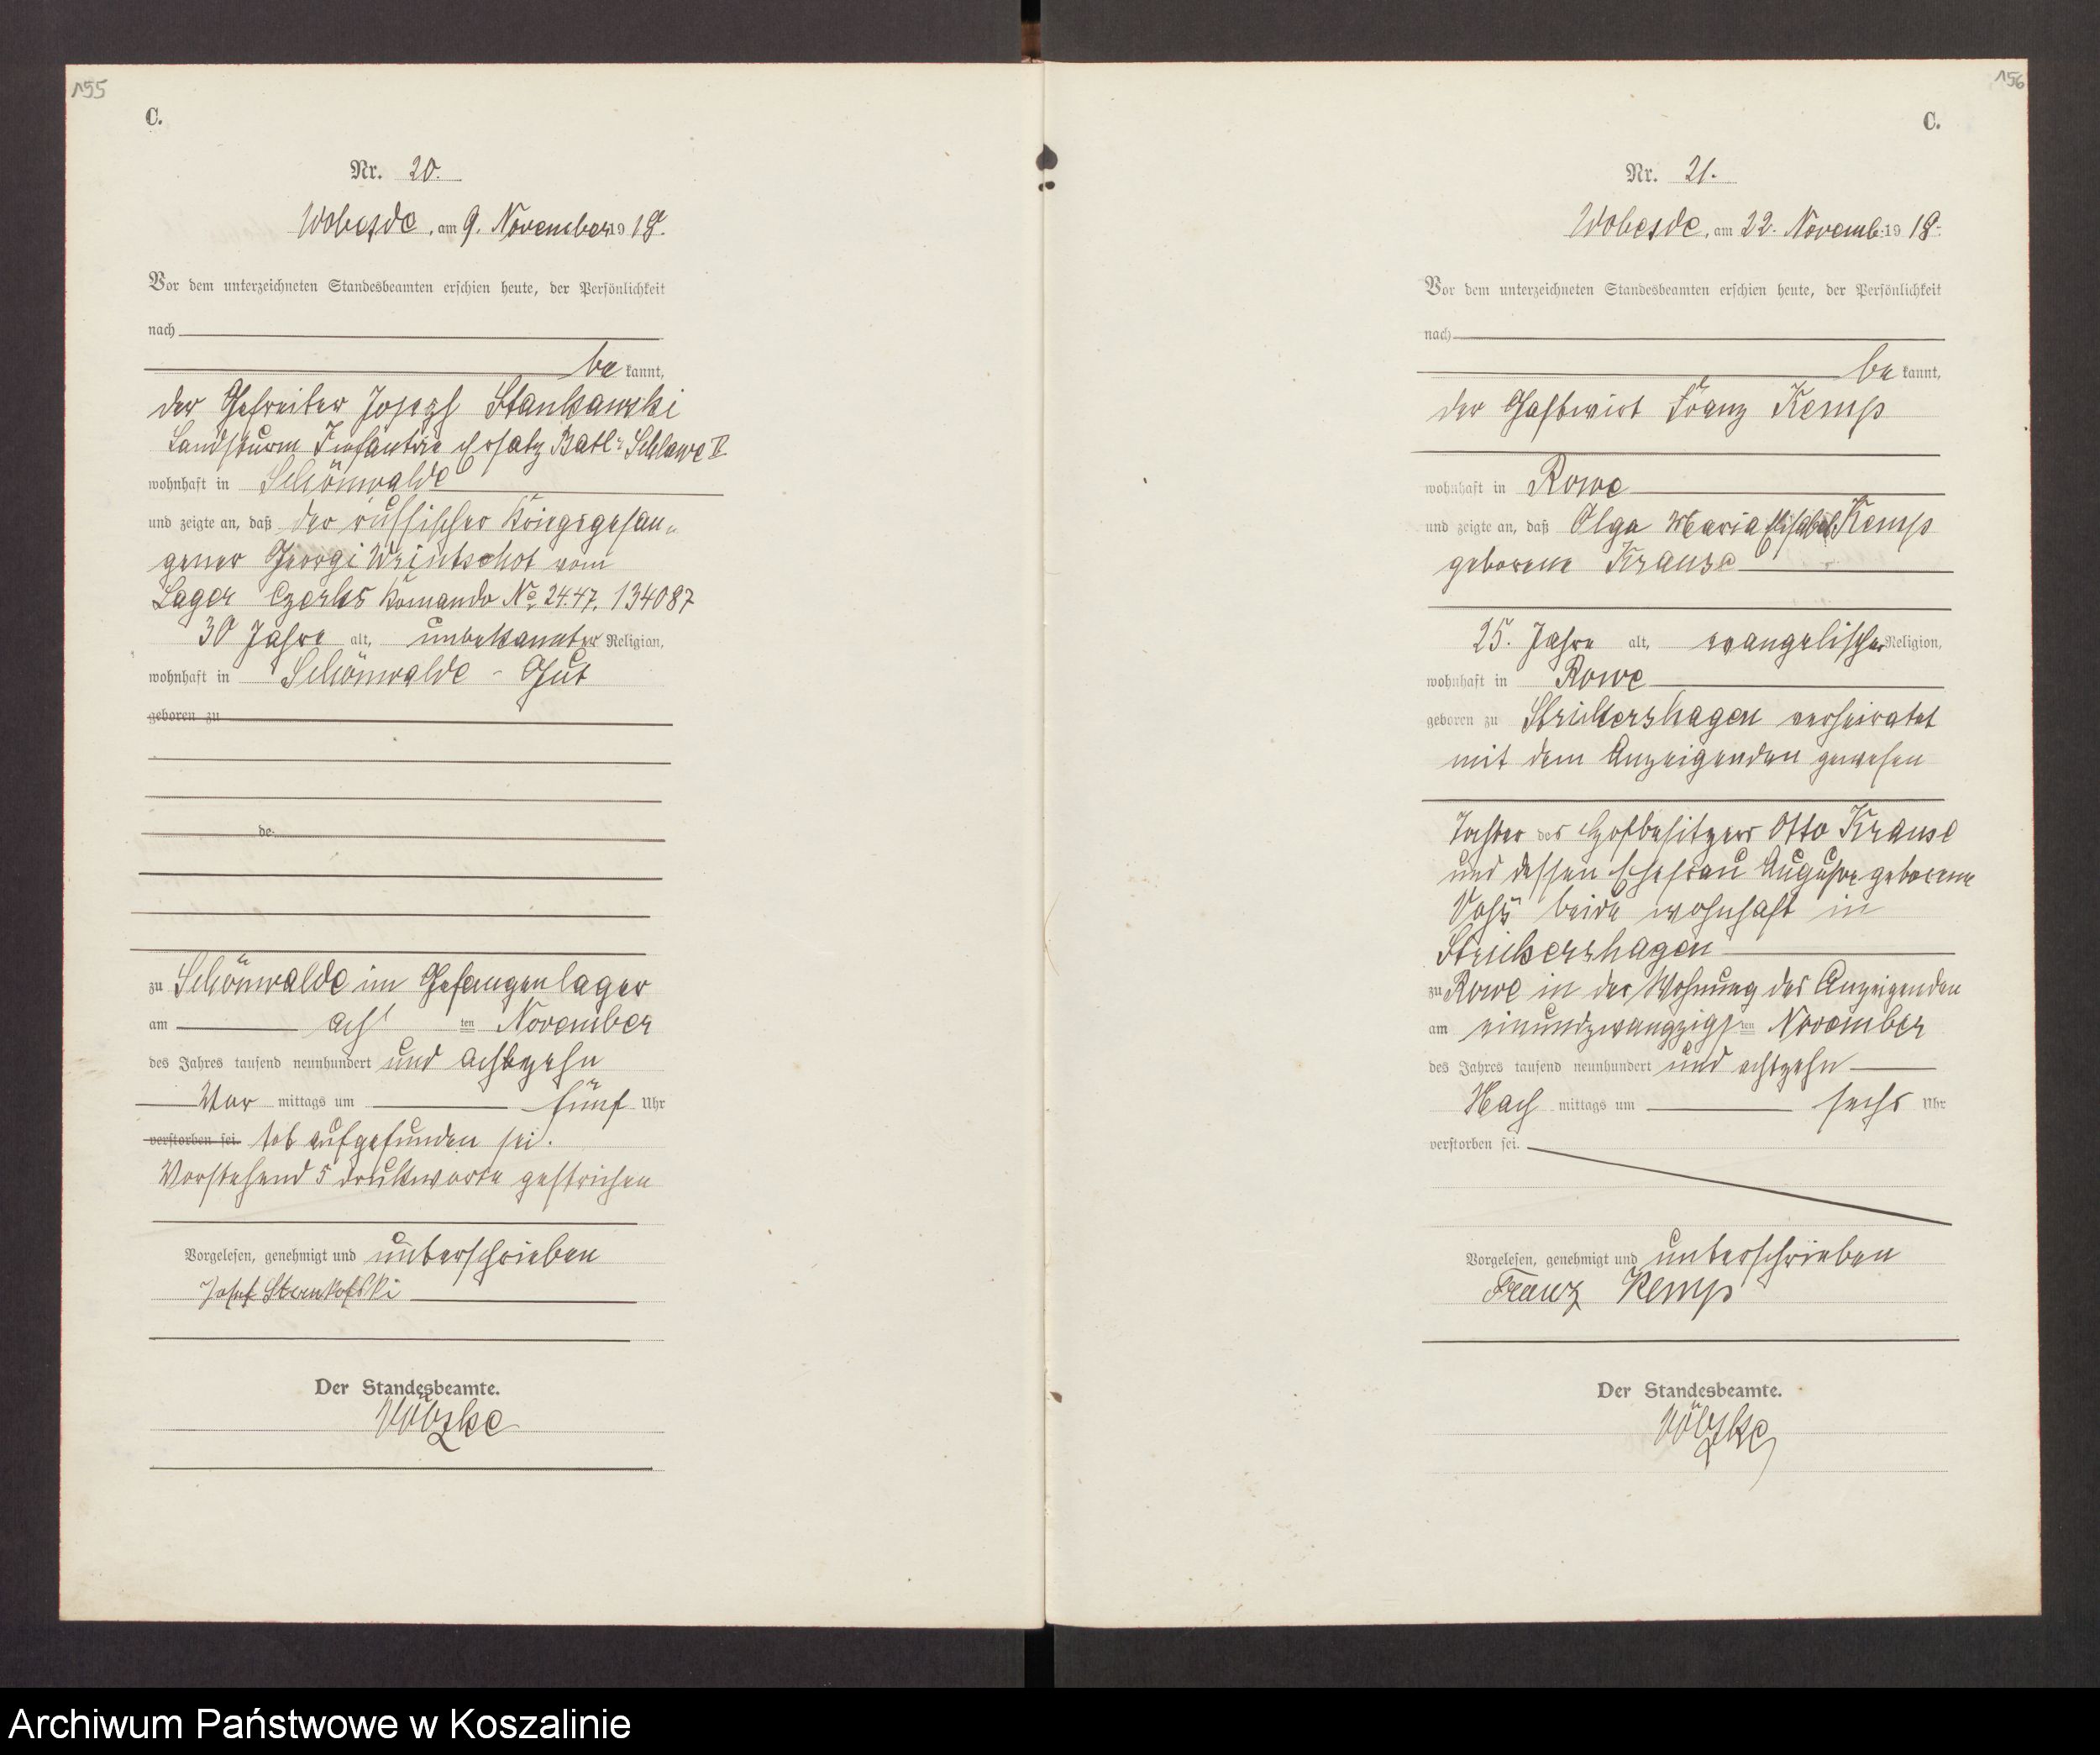 155
C.
Nr. 20.
Wobesde, am 9. November 19 18.
Vor dem unterzeichneten Standesbeamten erschien heute, der Persönlichkeit
nach
be kannt,
der Gefreiter Joseph Stankowski
Landsturm Infantrie Ersatz Batl: Schlawe II
wohnhaft in Schönwalde
und zeigte an, daß der russischer Kriegsgefan-
gener Georgi vom
Lager Czersk Komando No 24.47. 134087
30 Jahre alt, unbekannter Religion,
wohnhaft in Schönwalde - Gut
geboren zu
de
zu Schönwalde im Gefangenlager
am acht ten November
des Jahres tausend neunhundert und achtzehn
Vor mittags um fünf Uhr
verstorben sei. tot aufgefunden sei.
Vorstehend 5 druckworte gestrichen
Vorgelesen, genehmigt und unterschrieben
Josef
Der Standesbeamte.
156
C.
Nr. 21.
Wobesde, am 22. Novemb: 19 18.
Vor dem unterzeichneten Standesbeamten erschien heute, der Persönlichkeit
nach
be kannt,
der Gastwirt Franz Kemp
wohnhaft in Rowe
und zeigte an, daß Olga Maria Elisabeth Kemp
geborene Krause
25. Jahre alt, evangelischer Religion,
wohnhaft in Rowe
geboren zu Strickershagen verheiratet
mit dem Anzeigenden gewesen
Tochter des Hofbesitzers Otto Krause
und dessen Ehefrau Auguste geborene
beide wohnhaft in
Strickershagen
zu Rowe in der Wohnung des Anzeigenden
am einundzwangzigs ten November
des Jahres tausend neunhundert und achtzehn
Nach mittags um sechs Uhr
verstorben sei.
Vorgelesen, genehmigt und unterschrieben
Franz Kemp
Der Standesbeamte.
Archiwum Państwowe w Koszalinie